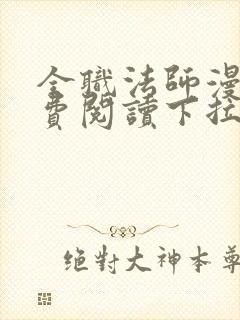 全職法師漫
費閱讀下拉
絕對大神本尊